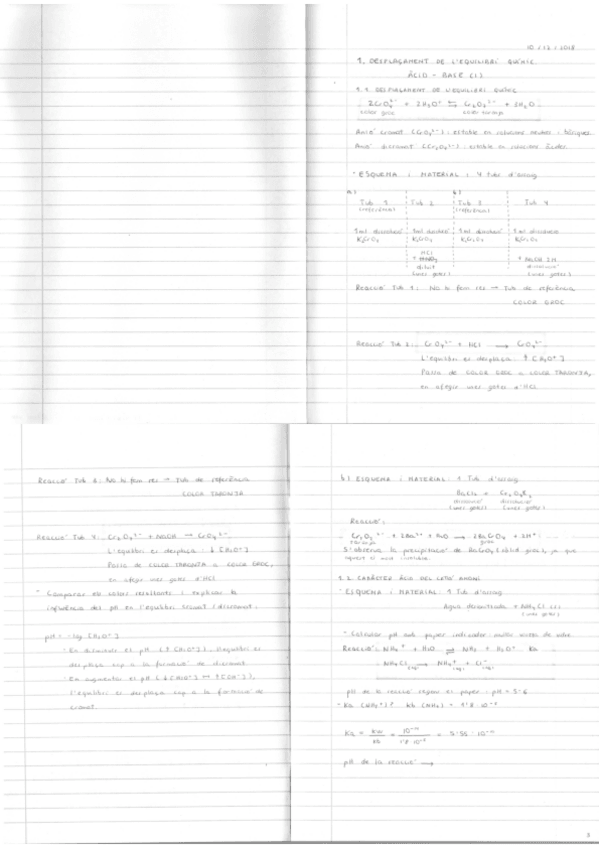 10 / 12 / 2018
1. DESPLAÇAMENT DE L'EQUILIBRI QUÍMIC
ÀCID - BASE (1)
1.1. DESPLAÇAMENT DE L'EQUILIBRI QUÍMIC
2CrO₄²⁻ + 2H₃O⁺ ⇆ Cr₂O₇²⁻ + 3H₂O
color groc color taronja
Anió cromat (CrO₄²⁻): estable en solucions neutres i bàsiques.
Anió dicromat (Cr₂O₇²⁻): estable en solucions àcides.
· ESQUEMA i MATERIAL: 4 Tubs d'assaig
a) b)
Tub 1 Tub 2 Tub 3 Tub 4
(referència) (referència)
1ml dissolució 1ml dissolució 1ml dissolució 1ml dissolució
HCl
diluït
(unes gotes)
+ NaOH 2M
dissolució
(unes gotes)
Reacció Tub 1: No hi fem res → Tub de referència
COLOR GROC
Reacció Tub 2: CrO₄²⁻ + HCl ⟶
L'equilibri es desplaça: ↑ [H₃O⁺]
Passa de COLOR GROC a COLOR TARONJA,
en afegir unes gotes d'HCl
Reacció Tub 3: No hi fem res → Tub de referència
COLOR TARONJA
Reacció Tub 4: Cr₂O₇²⁻ + NaOH ⟶ CrO₄²⁻
L'equilibri es desplaça: ↓ [H₃O⁺]
Passa de COLOR TARONJA a COLOR GROC,
en afegir unes gotes d'HCl
· Comparar els colors resultants i explicar la
influència del pH en l'equilibri cromat / dicromat:
pH = -log [H₃O⁺]
· En disminuir el pH (↑ [H₃O⁺]), l'equilibri es
desplaça cap a la formació de dicromat.
· En augmentar el pH (↓ [H₃O⁺] ↔ ↑ [OH⁻]),
l'equilibri es desplaça cap a la formació de
cromat.
b) ESQUEMA i MATERIAL: 1 Tub d'assaig
BaCl₂ + Cr₂O₇K₂
dissolució dissolució
(unes gotes) (unes gotes)
Reacció:
Cr₂O₇²⁻ + 2Ba²⁺ + H₂O ⟶ 2BaCrO₄ + 2H⁺
taronja groc
S'observa la precipitació de BaCrO₄ (sòlid groc), ja que
aquest és molt insoluble.
1.2. CARÀCTER ÀCID DEL CATIÓ AMONI
· ESQUEMA i MATERIAL: 1 Tub d'assaig
Aigua desionitzada + NH₄Cl (s)
· Calcular pH amb paper indicador
Reacció: NH₄⁺ + H₂O ⇌ NH₃ + H₃O⁺ Ka
NH₄Cl (aq) ⟶ NH₄⁺ (aq) + Cl⁻ (aq)
pH de la reacció segons el paper: pH = 5-6
· Ka (NH₄⁺)? kb (NH₃) = 1'8·10⁻⁵
Ka = kw / kb = 10⁻¹⁴ / 1'8·10⁻⁵ = 5'55·10⁻¹⁰
pH de la reacció ⟶
3